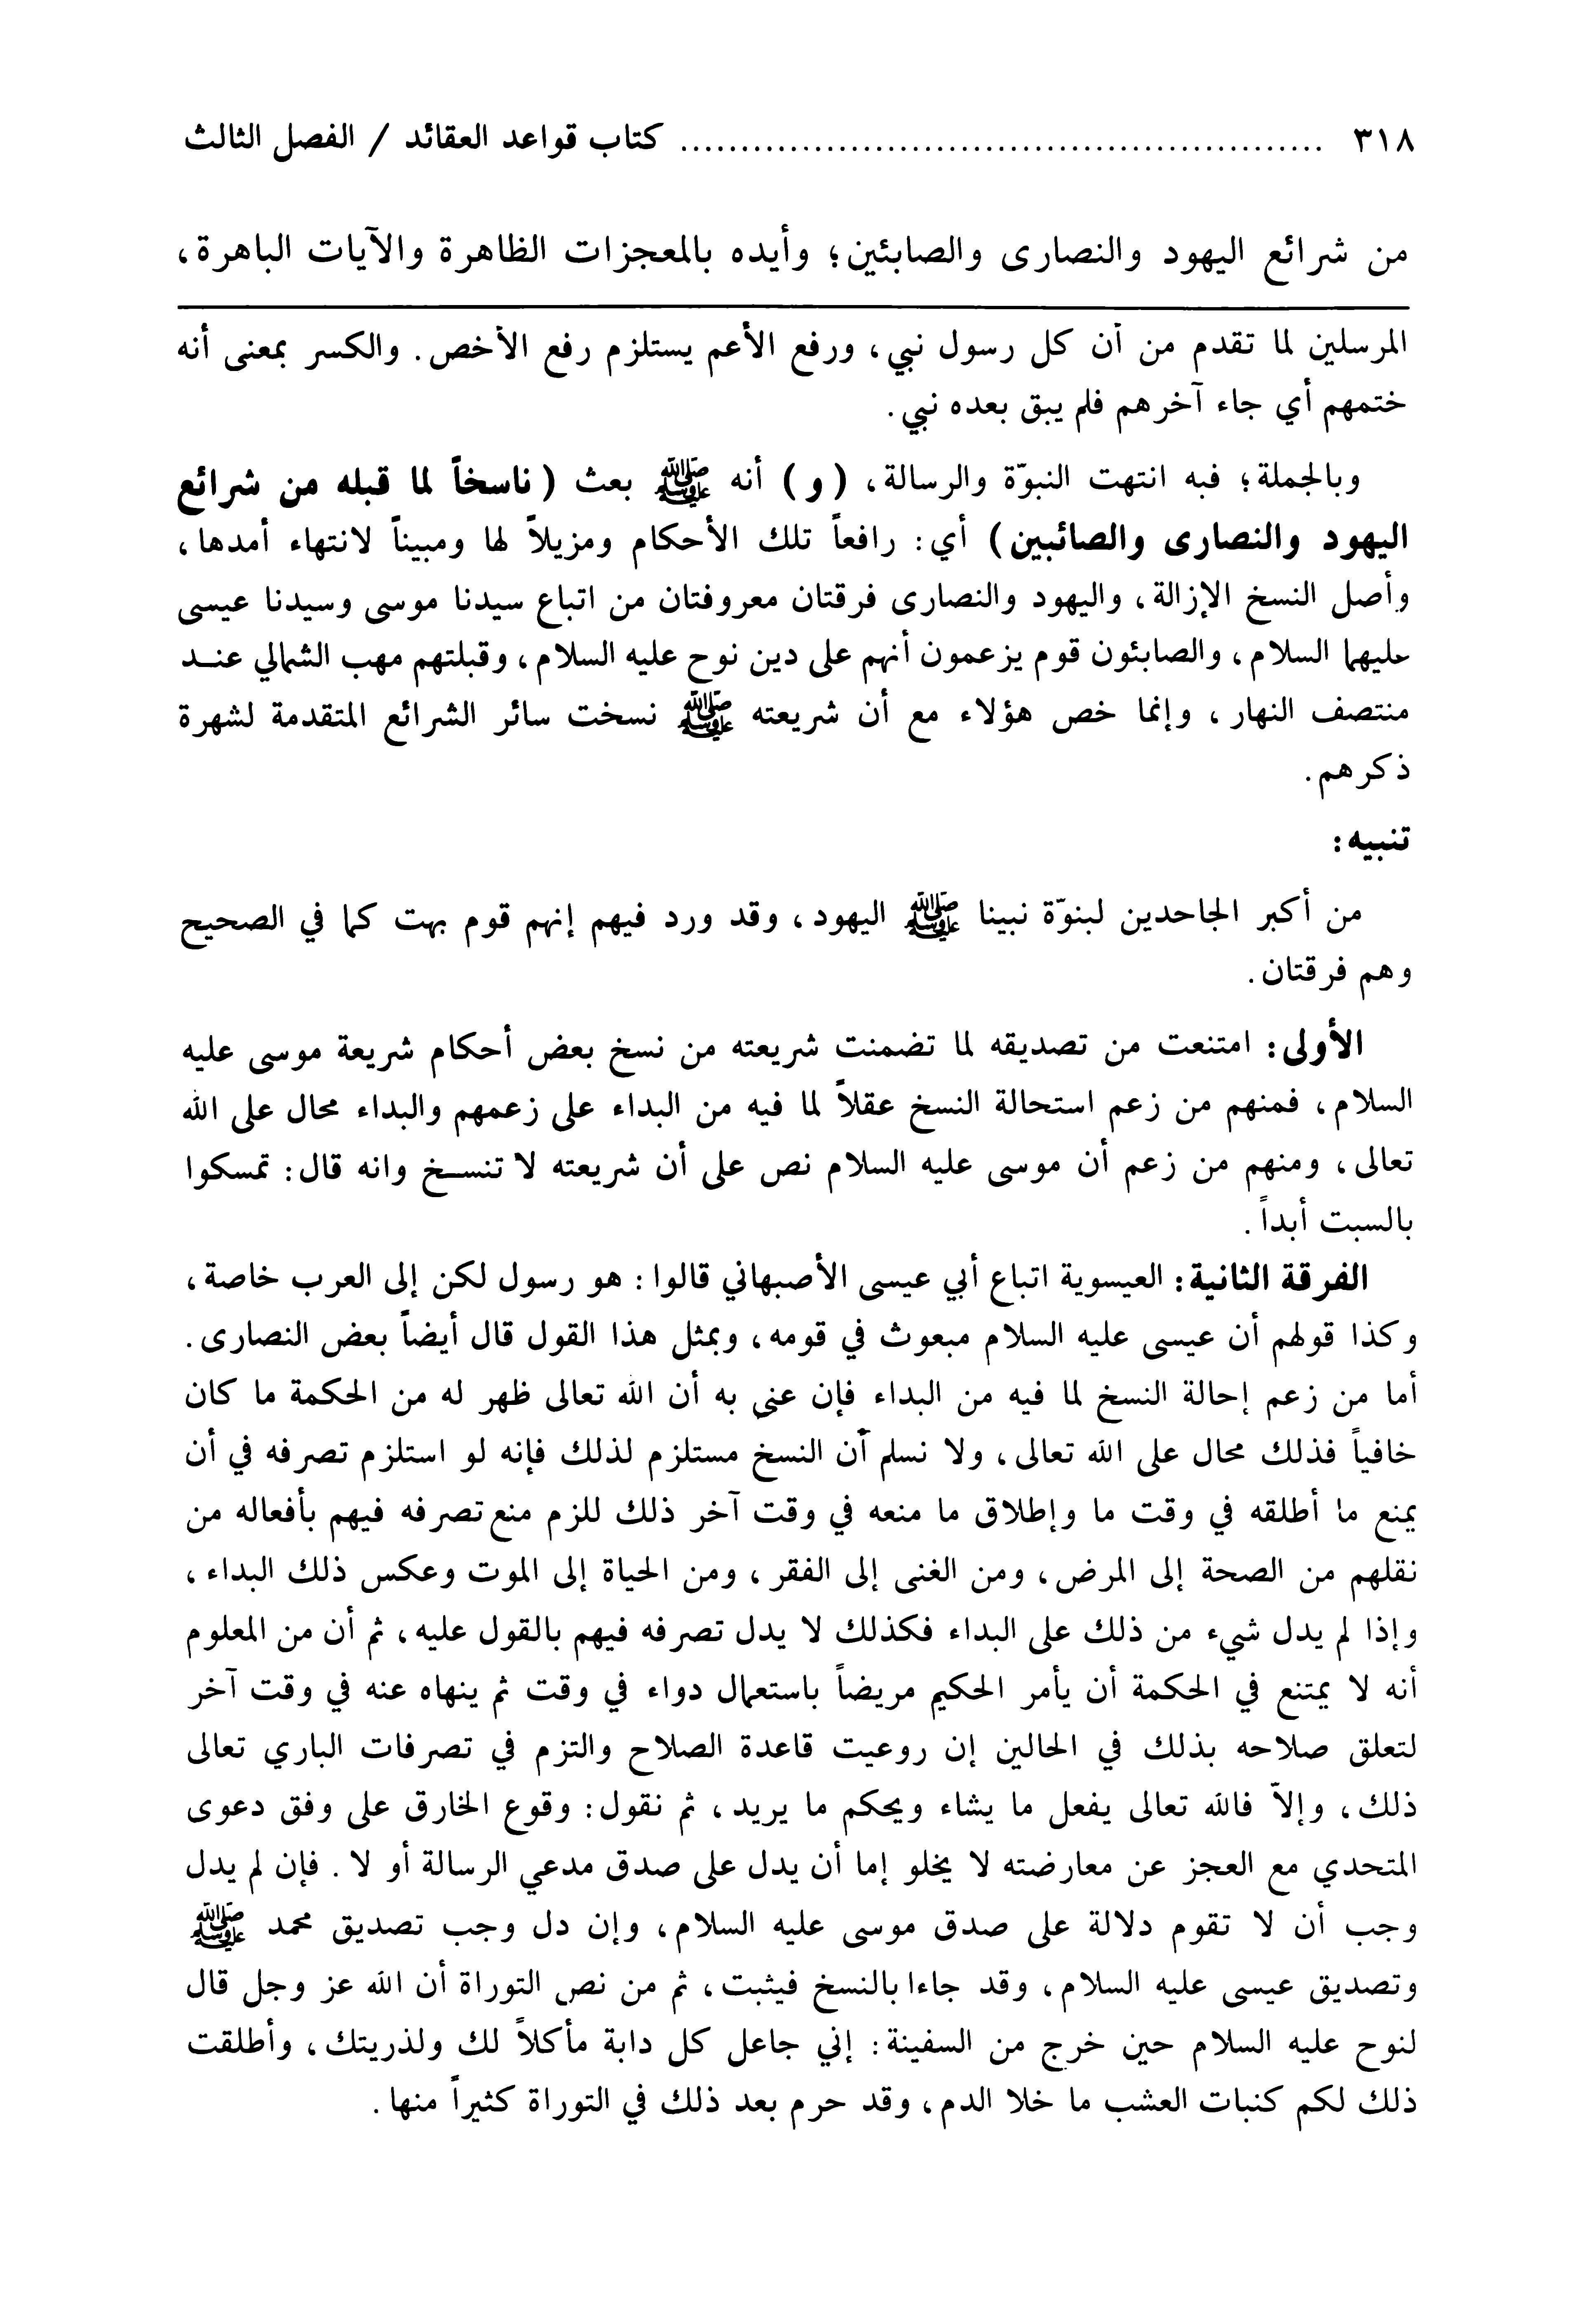 ٣١٨ ..................................................... كتاب قواعد العقائد / الفصل الثالث
من شرائع اليهود والنصارى والصابئين؛ وأيده بالمعجزات الظاهرة والآيات الباهرة،
المرسلين لما تقدم من أن كل رسول نبي، ورفع الأعم يستلزم رفع الأخص. والكسر بمعنى أنه
ختمهم أي جاء آخرهم فلم يبق بعده نبي.
وبالجملة؛ فبه انتهت النبوّة والرسالة، (و) أنه ﷺ بعث (ناسخاً لما قبله من شرائع
اليهود والنصارى والصائبين) أي: رافعاً تلك الأحكام ومزيلاً لها ومبيناً لانتهاء أمدها،
وأصل النسخ الإزالة، واليهود والنصارى فرقتان معروفتان من اتباع سيدنا موسى وسيدنا عيسى
عليهما السلام، والصابئون قوم يزعمون أنهم على دين نوح عليه السلام، وقبلتهم مهب الشمالي عنــد
منتصف النهار، وإنما خص هؤلاء مع أن شريعته ﷺ نسخت سائر الشرائع المتقدمة لشهرة
ذكرهم.
تنبيه:
من أكبر الجاحدين لبنوّة نبينا ﷺ اليهود، وقد ورد فيهم إنهم قوم بهت كما في الصحيح
وهم فرقتان.
الأولى: امتنعت من تصديقه لما تضمنت شريعته من نسخ بعض أحكام شريعة موسى عليه
السلام، فمنهم من زعم استحالة النسخ عقلاً لما فيه من البداء على زعمهم والبداء محال على الله
تعالى، ومنهم من زعم أن موسى عليه السلام نص على أن شريعته لا تنســخ وانه قال: تمسكوا
بالسبت أبداً.
الفرقة الثانية: العيسوية اتباع أبي عيسى الأصبهاني قالوا: هو رسول لكن إلى العرب خاصة،
وكذا قولهم أن عيسى عليه السلام مبعوث في قومه، وبمثل هذا القول قال أيضاً بعض النصارى.
أما من زعم إحالة النسخ لما فيه من البداء فإن عنى به أن الله تعالى ظهر له من الحكمة ما كان
خافياً فذلك محال على الله تعالى، ولا نسلم أن النسخ مستلزم لذلك فإنه لو استلزم تصرفه في أن
يمنع ما أطلقه في وقت ما وإطلاق ما منعه في وقت آخر ذلك للزم منع تصرفه فيهم بأفعاله من
نقلهم من الصحة إلى المرض، ومن الغنى إلى الفقر، ومن الحياة إلى الموت وعكس ذلك البداء،
وإذا لم يدل شيء من ذلك على البداء فكذلك لا يدل تصرفه فيهم بالقول عليه، ثم أن من المعلوم
أنه لا يمتنع في الحكمة أن يأمر الحكيم مريضاً باستعمال دواء في وقت ثم ينهاه عنه في وقت آخر
لتعلق صلاحه بذلك في الحالين إن روعيت قاعدة الصلاح والتزم في تصرفات الباري تعالى
ذلك، وإلاّ فالله تعالى يفعل ما يشاء ويحكم ما يريد، ثم نقول: وقوع الخارق على وفق دعوى
المتحدي مع العجز عن معارضته لا يخلو إما أن يدل على صدق مدعي الرسالة أو لا. فإن لم يدل
وجب أن لا تقوم دلالة على صدق موسى عليه السلام، وإن دل وجب تصديق محمد ﷺ
وتصديق عيسى عليه السلام، وقد جاءا بالنسخ فيثبت، ثم من نص التوراة أن الله عز وجل قال
لنوح عليه السلام حين خرج من السفينة: إني جاعل كل دابة مأكلاً لك ولذريتك، وأطلقت
ذلك لكم كنبات العشب ما خلا الدم، وقد حرم بعد ذلك في التوراة كثيراً منها.